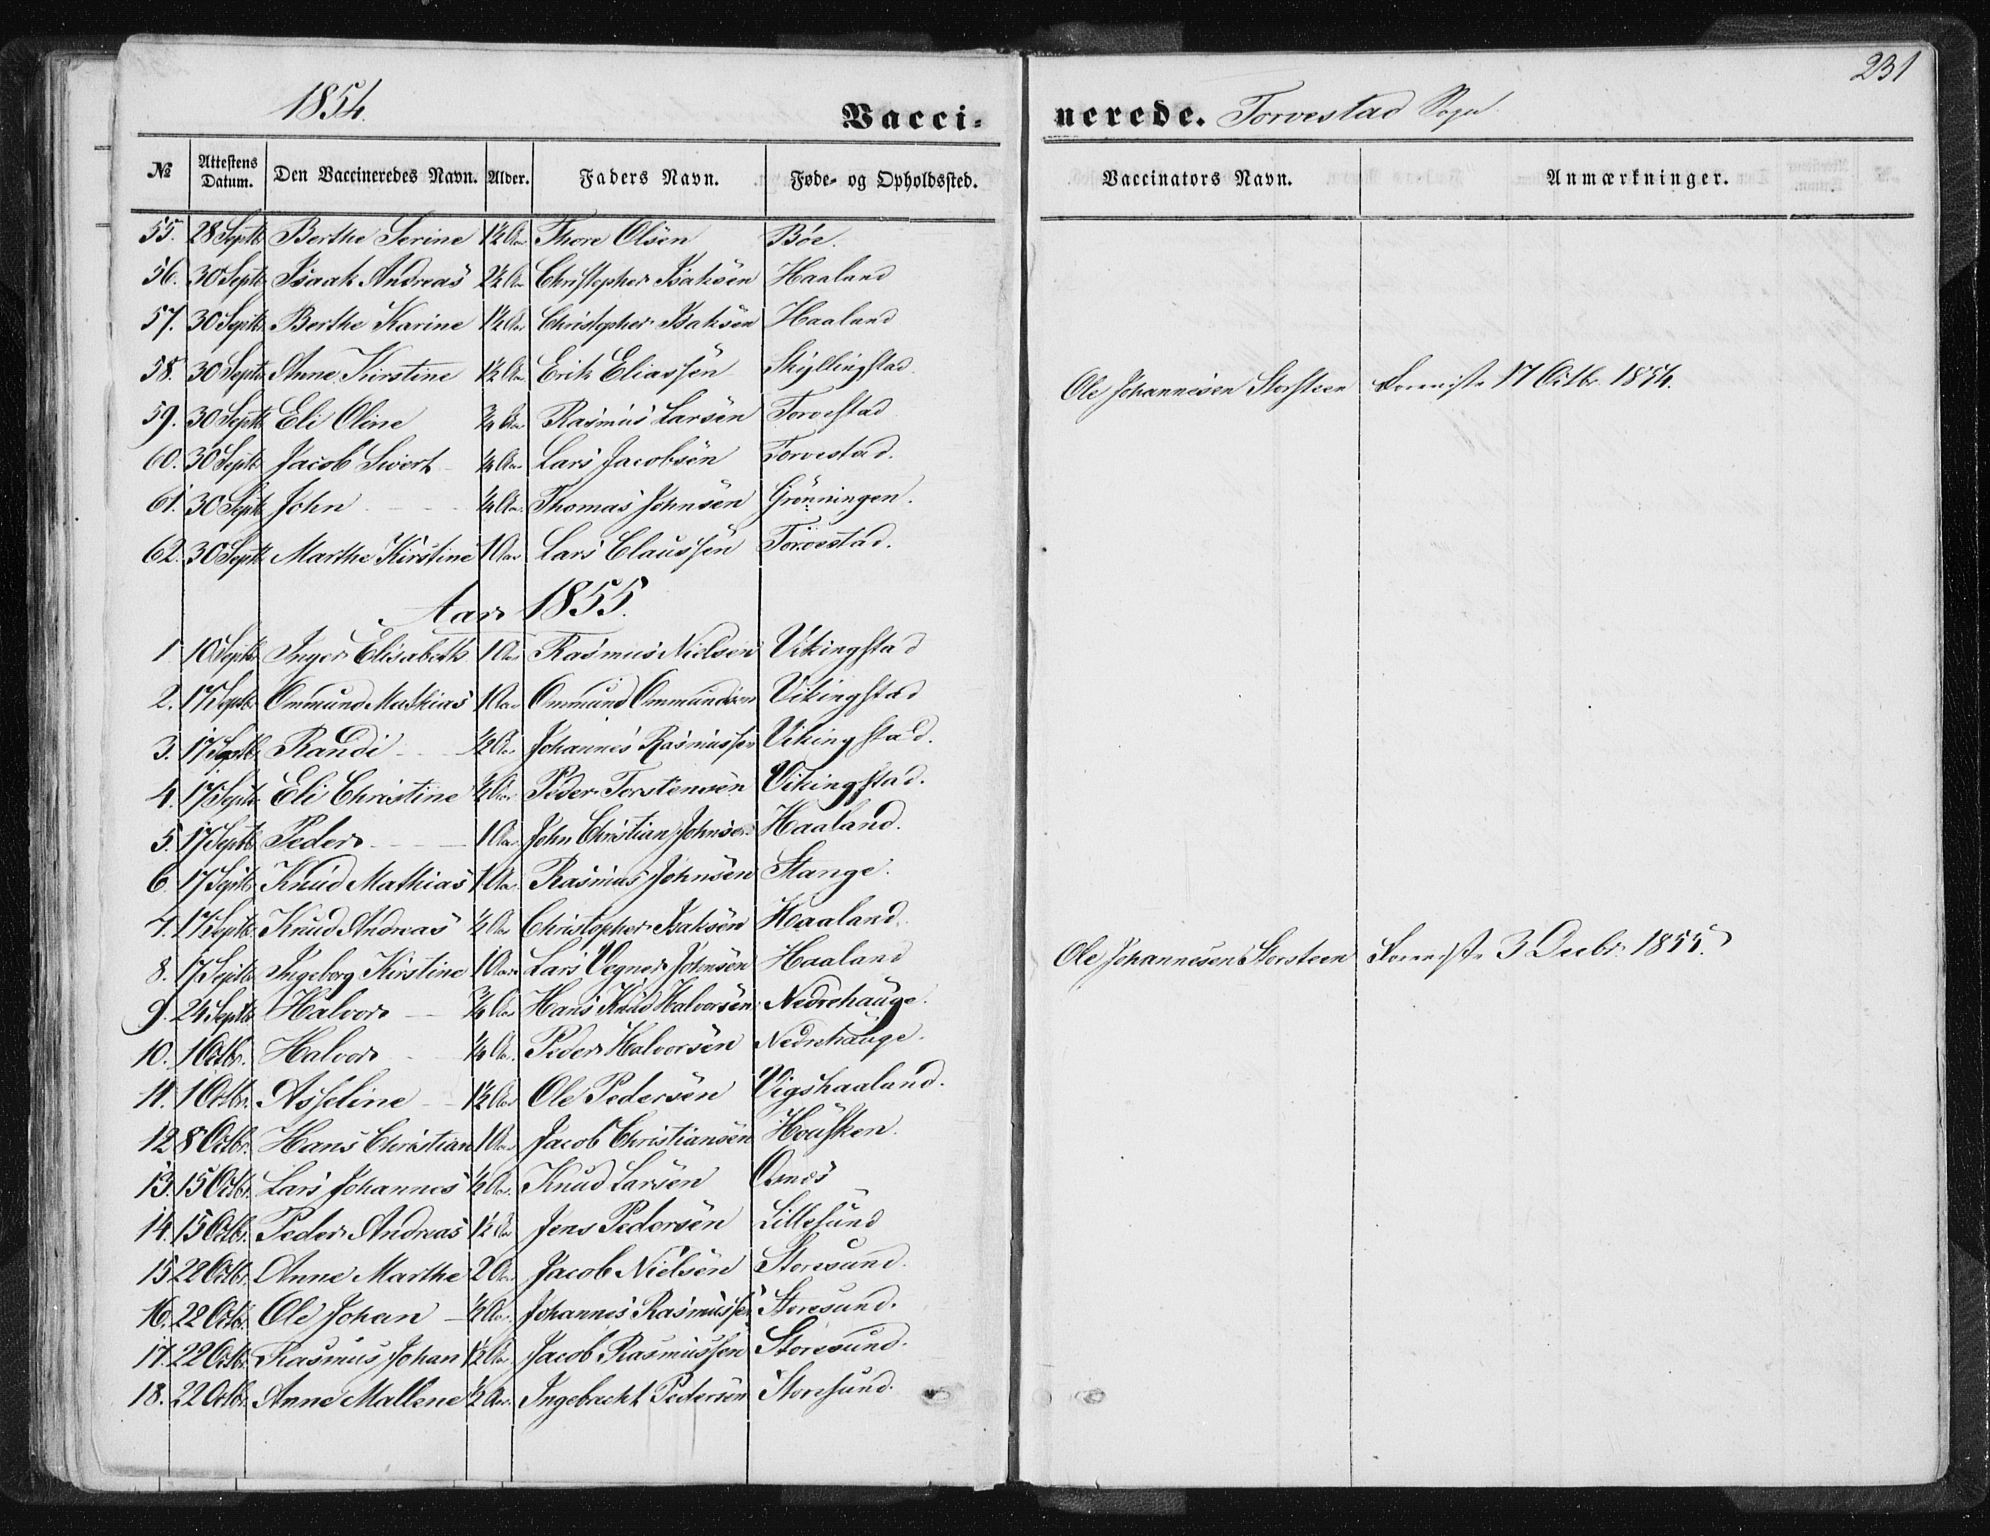 1854. Vaccinerede. Torvestad Sogn. 231
№ Attestens Datum. Den Vaccineredes Navn. Alder. Faders Navn. Føde- og Opholdssted. Vaccinators Navn. Anmærkninger.
55. 28 Septb Berthe Serine 1½ Aar Thore Olsen Bøe.
56. 30 Septb Isaak Andreas 2½ Aar Christopher Isaksen Haaland
57. 30 Septb Berthe Karine 1½ Aar Christopher Isaksen Haaland
58. 30 Septb Anne Kirstine 1½ Aar Erik Eliassen Skyllingstad. Ole Johannesen Storsteen 17 Octbr. 1854.
59. 30 Septb Eli Oline ¾ Aar Rasmus Larsen Torvestad
60. 30 Septb Jacob Sivert ¼ Aar Lars Jacobsen Torvestad.
61. 30 Septb John ¼ Aar. Thomas Johnsen Grønningen.
62. 30 Septb Marthe Kirstine 1 Aar Lars Claussen Torvestad.
Aar 1855.
1 10 Septb Inger Elisabeth 1 Aar Rasmus Nielsen Vikingstad
2. 17 Septb Ommund Mathias 1 Aar Ommund Ommundsen Vikingstad
3. 17 Septb Randi ½ Aar Johannes Rasmussen Vikingstad.
4. 17 Septb Eli Christine ½ Aar Peder Torstensen Vikingstad.
5. 17 Septb Peder 1 Aar John Christian Johnsen Haaland.
6. 17 Septb Knud Mathias 1 Aar. Rasmus Johnsen Stange.
7. 17 Septb. Knud Andreas ½ Aar Christopher Isaksen Haaland.
8. 17 Septb Ingeborg Kirstine 1 Aar Lars Vegner Johnsen Haaland Ole Johannesen Storsteen 3 Decbr. 1855.
9. 24 Septb Halvor ¾ Aar Hans Knud Halvorsen Nedrehauge.
10. 1 Octbr. Halvor ¼ Aar. Peder Halvorsen Nedrehauge.
11. 1 Octbr. Asseline 1½ Aar Ole Pedersen Vigshaaland.
12 8 Octbr. Hans Christian 1 Aar. Jacob Christiansen
13. 15 Octbr. Lars Johannes ½ Aar. Knud Larsen Osnes
14. 15 Octbr. Peder Andreas 1½ Aar Jens Pedersen Lillesund
15 22 Octbr. Anne Marthe 2 Aar Jacob Nielsen Storesund.
16. 22 Octbr. Ole Johan ½ Aar. Johannes Rasmussen Storesund.
17. 22 Octbr. Rasmus Johan 1½ Aar. Jacob Rasmussen Storesund.
18. 22 Octbr. Anne Mallene ½ Aar. Ingebrecht Pedersen Storesund.